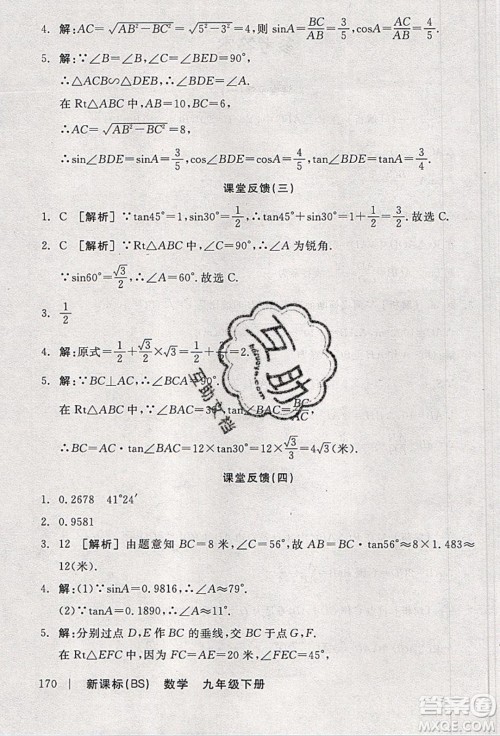 4. 解:AC=√(AB²−BC²)=√(5²−3²)=4,则 sinA=BC/AB=3/5,cosA=AC/AB=4/5.
5. 解:∵∠A=∠A,∠DEA=∠C=90°,
∴△ABC∽△ADE,∴∠ABC=∠BDE.
在 Rt△ABC 中,AB=10,BC=6,
∴AC=√(AB²−BC²)=8,
∴sin∠BDE=sinA=3/5,cos∠BDE=4/5,tan∠BDE=3/4.
课堂反馈(三)
1. C [解析]∵tan45°=1,sin30°=1/2,∴1+1/2=3/2.故选 C.
2. C [解析]∵△ABC 中,∠C=90°,∴∠A 为锐角.
∵sin60°=√3/2,∴∠A=60°.故选 C.
3. 1/2
4. 解:原式=1/2+√3/2×√3=1/2+3/2=2.
5. 解:∵BC⊥AC,∴∠BCA=90°.
在 Rt△ABC 中,∵tan∠BAC=BC/AC,
∴BC=AC·tan∠BAC=12×tan30°=12×√3/3=4√3(米).
课堂反馈(四)
1. 0.2678 41°24′
2. 0.9581
3. 12 [解析] 由题意知 BC=8 米,∠C=56°,故 AB=BC·tan56°≈8×1.483≈
12(米).
4. 解:(1)∵sinA=0.9816,∴∠A≈79°.
(2)∵tanA=0.1890,∴∠A≈11°.
5. 解:分别过点 D,E 作 BC 的垂线,交 BC 于点 G,F.
170 | 新课标(BS) 数学 九年级下册
互助
互助文档